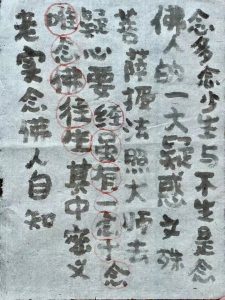 念多念少生与不生是念
佛人的一大疑惑文殊
菩萨授法照大师去
疑心要有一念十念
唯念佛往生其中密义
老实念佛人自知